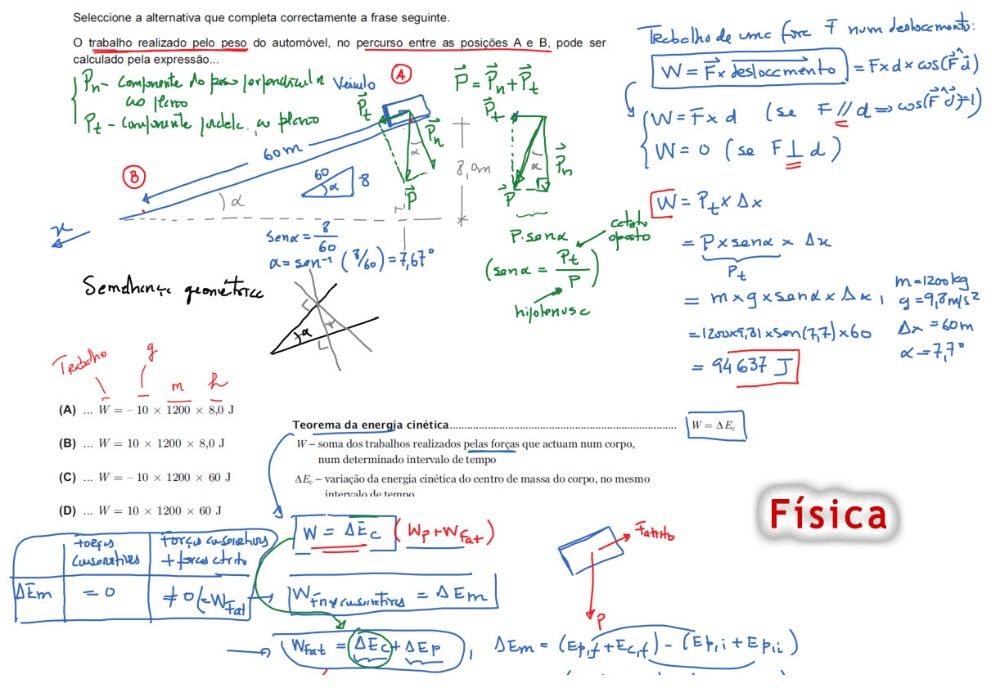 Seleccione a alternativa que completa correctamente a frase seguinte.
O trabalho realizado pelo peso do automóvel, no percurso entre as posições A e B, pode ser
calculado pela expressão...
Pn - componente do peso perpendicular
ao plano
Pt - componente paralela ao plano
Veículo
A
Pt
Pn
P
60m
8,0m
α
B
x
60
8
α
sen α = 8/60
α = sen⁻¹ (8/60) = 7,67°
P = Pn + Pt
Pt
α
Pn
P
P.senα
(senα = Pt/P)
cateto
oposto
hipotenusa
Trabalho de uma força F num deslocamento:
W = F × deslocamento = F×d×cos(F^d)
W = F × d (se F // d ⇒ cos(F^d)=1)
W = 0 (se F ⊥ d)
W = Pt × Δx
= P × senα × Δx
Pt
= m × g × senα × Δx,
= 1200×9,81×sen(7,7)×60
= 94637 J
m = 1200 kg
g = 9,8 m/s²
Δx = 60m
α = 7,7°
Semelhança geométrica
α
Trabalho
g
m
h
(A) ... W = – 10 × 1200 × 8,0 J
(B) ... W = 10 × 1200 × 8,0 J
(C) ... W = – 10 × 1200 × 60 J
(D) ... W = 10 × 1200 × 60 J
Teorema da energia cinética
W = ΔEc
W – soma dos trabalhos realizados pelas forças que actuam num corpo,
num determinado intervalo de tempo
ΔEc – variação da energia cinética do centro de massa do corpo, no mesmo
intervalo de tempo
Física
W = ΔEc (Wp + WFat)
Fatrito
P
forças
conservativas
forças conservativas
+ forças atrito
ΔEm
= 0
≠ 0 (=WFat)
WFñ conservativas = ΔEm
WFat = ΔEc + ΔEp
ΔEm = (Ep,f + Ec,f) - (Ep,i + Ep,i)